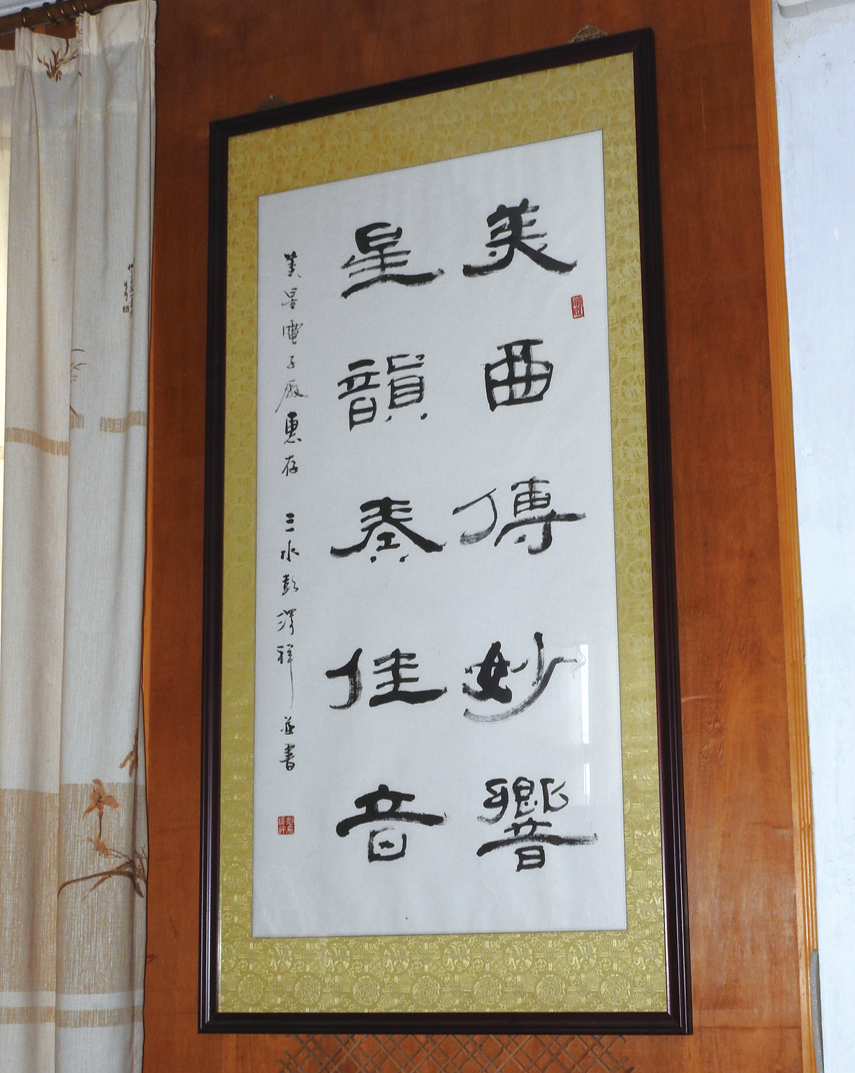 美酉傳妙響
星韻奏佳音
美星電子厰惠存 三水彭澤祥並書